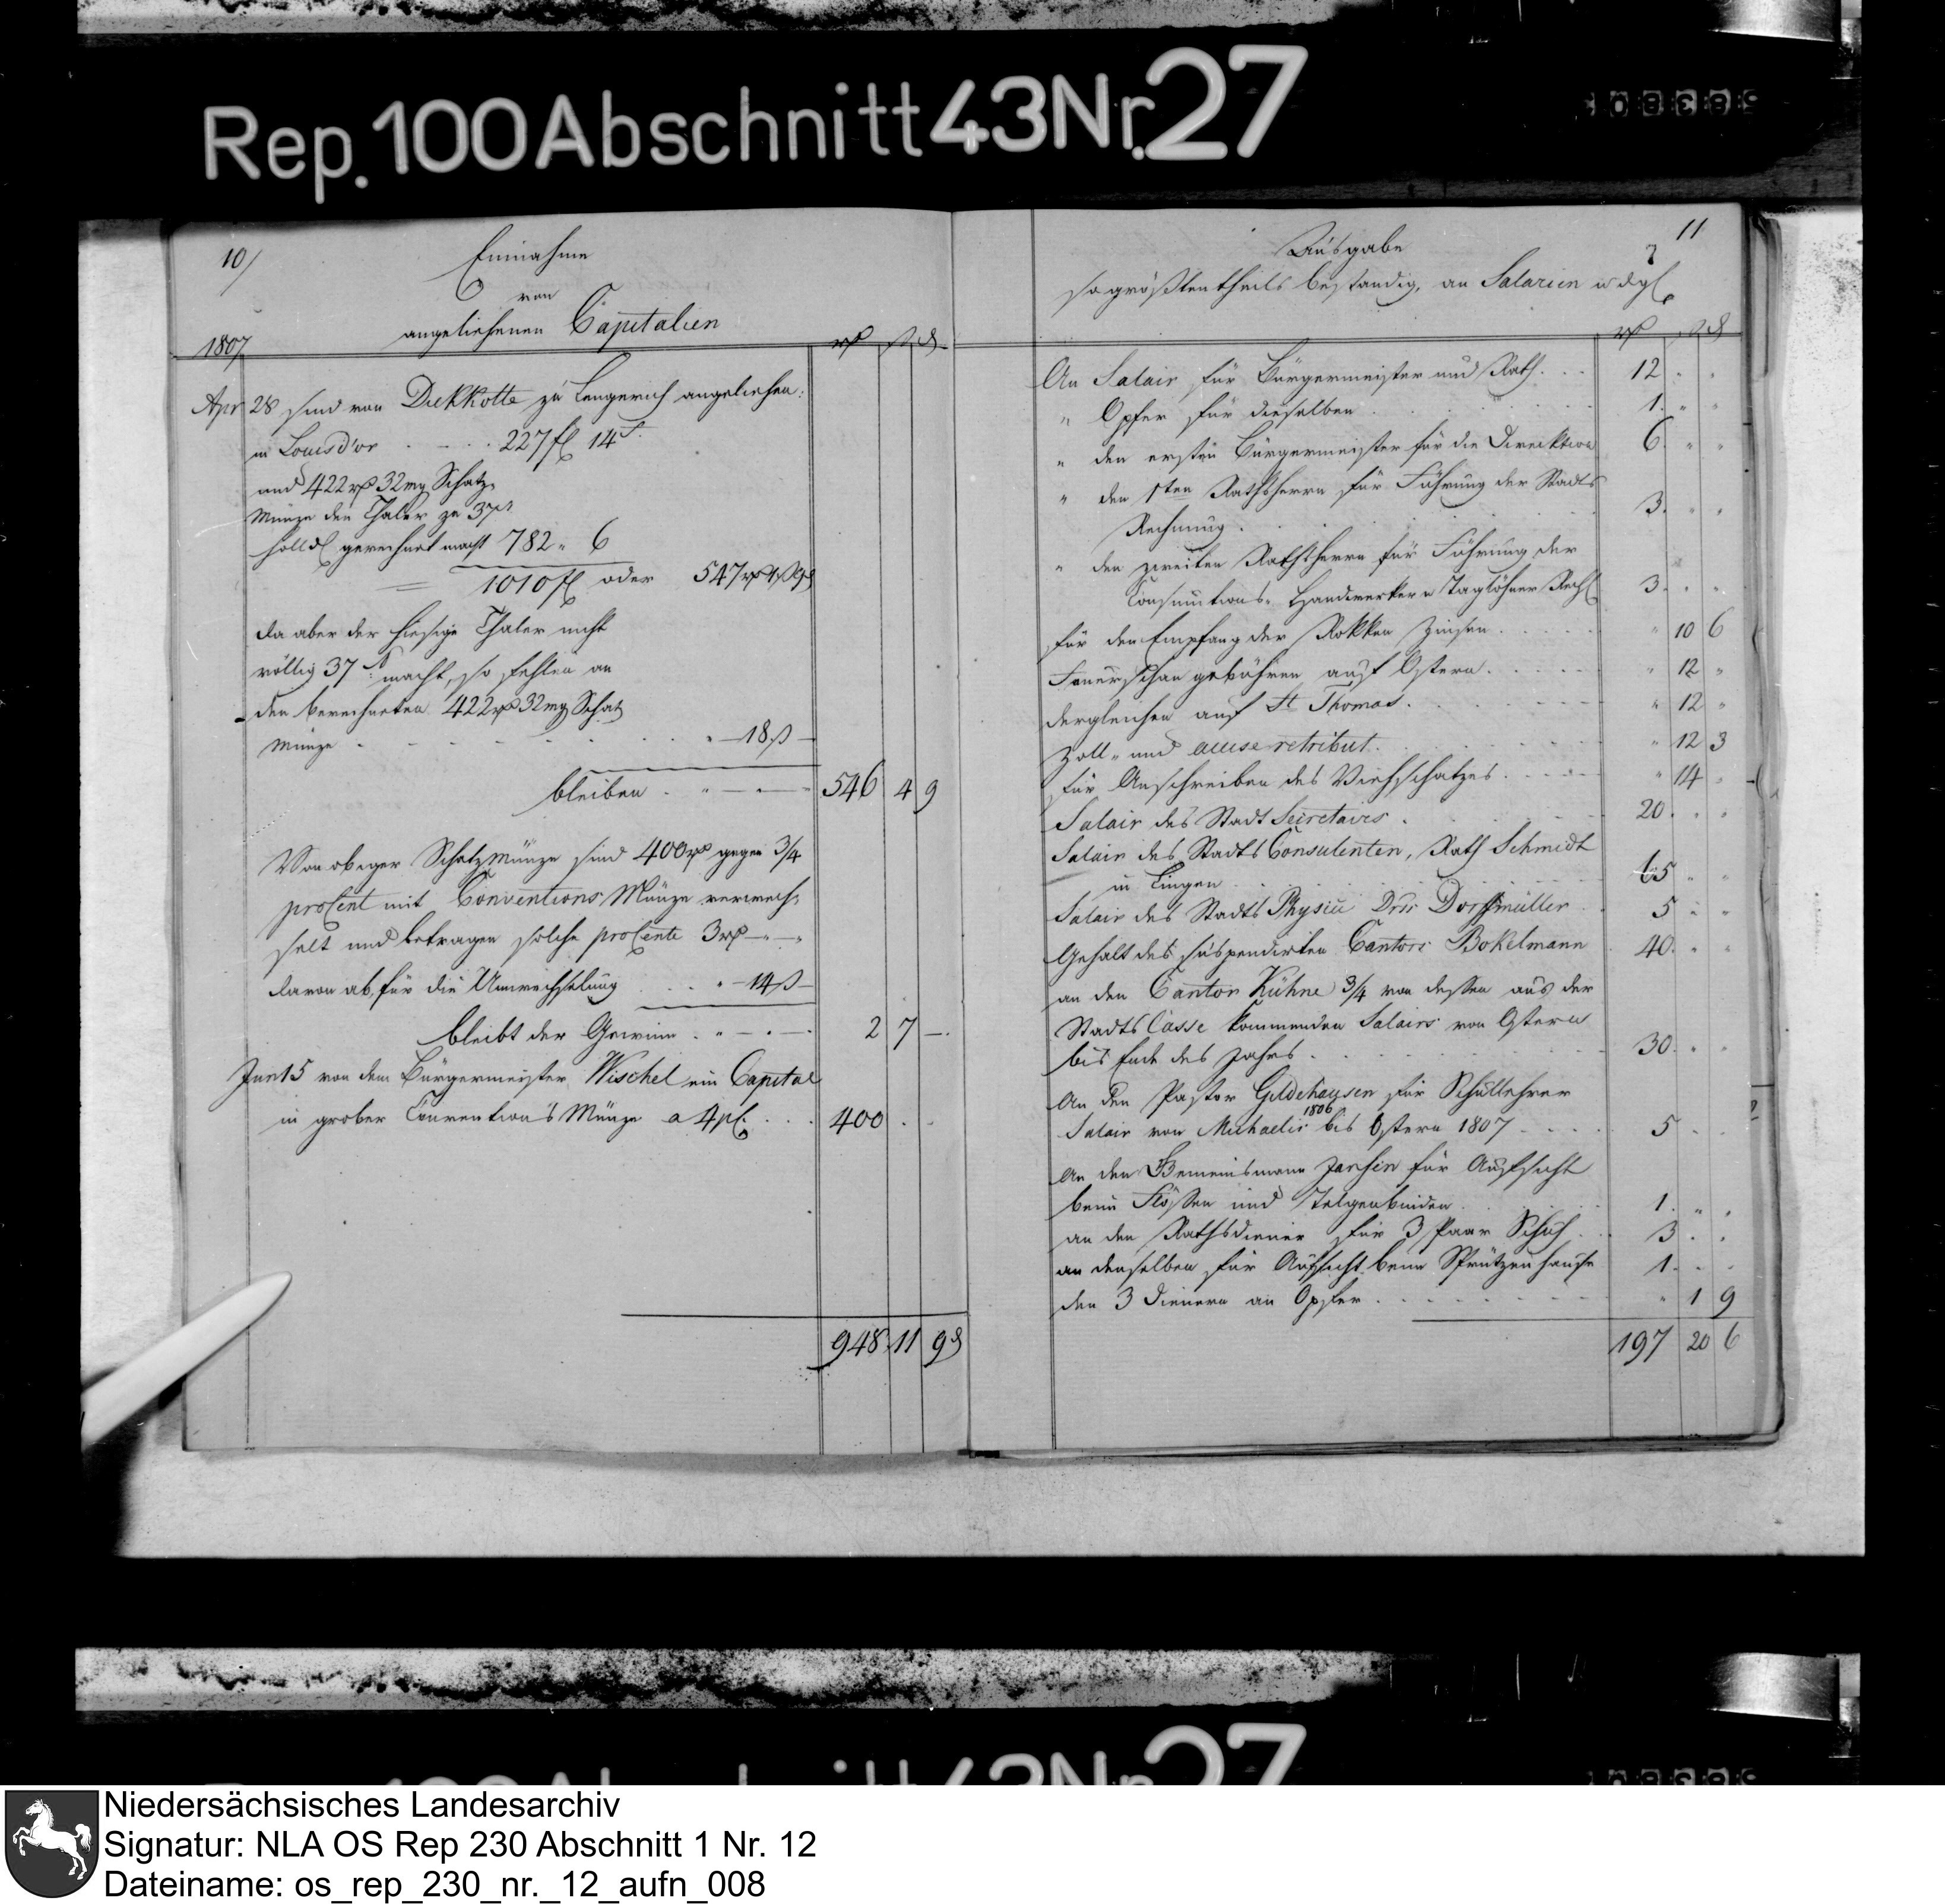 Rep. 100 Abschnitt 43 Nr. 27
10/
Einnahme
von
angeliehenen Capitalien
1807
rthlr ß d
Apr 28 sind von Dickkotte zu Lengerich angeliehen:
in Louisd'or - - - - 227 fl 14 s.
und 422 rthlr 32 mg Schatz-
Münze den Thaler zu 37 s
holld gerechnet macht 782 " 6
= 1010 fl oder 547 rthlr 1 ß 9 d
da aber der hiesige Thaler nicht
völlig 37 s. macht, so fehlen an
den berechneten 422 rthlr 32 mg Schatz
Münze - - - - - " — 18 ß —
bleiben . " — " — 546 4 9
Von obiger Schatzmünze sind 400 rthlr gegen 3/4
proCent mit Conventions Münze verwech-
selt und betragen solche proCente 3 rthlr — " —
davon ab, für die Umwechselung . . . " — 14 ß —
bleibt der Gewinn . " — " — 2 7 —.
Jun 15 von dem Bürgermeister Wischel ein Capital
in grober Conventions Münze a 4 pC. . . . 400 . .
948 11 9 d
11
Ausgabe
so größtentheils beständig, an Salarien u dgl
rthlr ß d
An Salair für Bürgermeister und Rath. . . 12 " "
" Opfer für dieselben . . . . . 1. " "
" den ersten Bürgermeister für die Direcktion 6. " "
" den 1ten Rathsherrn für Führung der Stadts
Rechnung . . . . . 3. " "
" den zweiten Rathsherrn für Führung der
Consumtions- Handwerker u Taglöhner Rech 3. " "
für den Empfang der Rokken Zinsen . . . . . " 10 6
Feuerschau gebühren auf Ostern . . . . . " 12 "
dergleichen auf St Thomas . . . . . " 12 "
Zoll- und accise retribut. . . . . " 12 3
für Anschreiben des Viehschatzes . . . . . " 14 "
Salair des Stadt Secretairs . . . . 20. " "
Salair des Stadts Consulenten, Rath Schmidt
in Lingen . . . . . 65 " "
Salair des Stadts Physici Dris Dorfmüller . 5 " "
Gehalt des suspendirten Cantors Bokelmann 40. " "
an den Cantor Kühne 3/4 von dessen aus der
Stadts Casse kommenden Salairs von Ostern
bis Ende des Jahrs . . . . . 30. " "
An den Pastor Gildehausen für Schullehrer
1806
Salair von Michaelis bis Ostern 1807 - - - 5 - -
An den Gemeinsmann Jansen für Aufsicht
beim Flössen und Telgenbinden . . . 1. " "
an den Rathsdiener für 3 Paar Schuh . . 3 . .
an denselben für Aufsicht beim Sprützenhause 1. - -
den 3 Dienern an Opfer . . . . . " 1 9
197 20 6
Niedersächsisches Landesarchiv
Signatur: NLA OS Rep 230 Abschnitt 1 Nr. 12
Dateiname: os_rep_230_nr._12_aufn_008